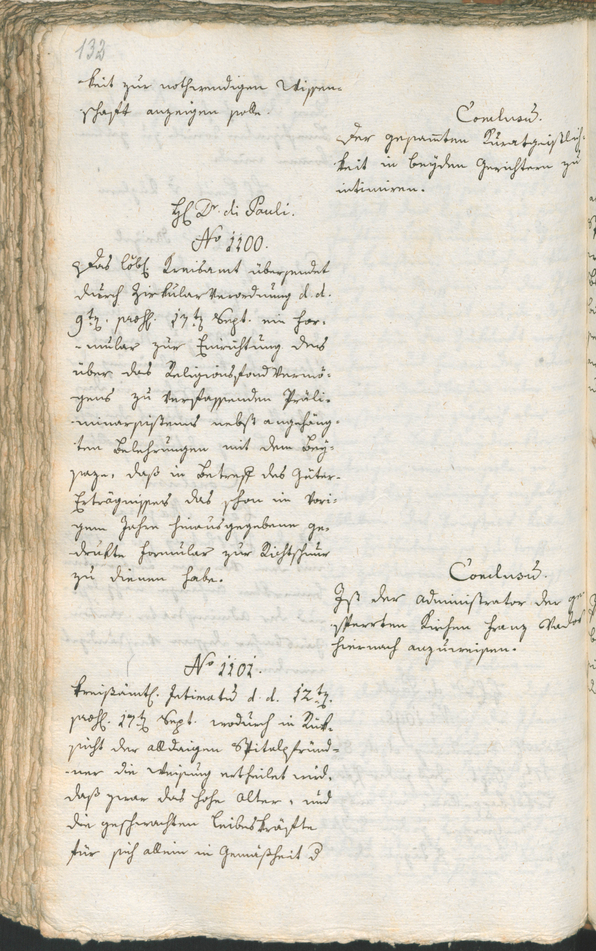 132
keit zur nothwendigen Wissen-
schaft anzeigen solle.
Conclusū.
Der gesam̄ten Kuratgeistlich-
keit in beyden Gerichtern zu
intimiren.
H. Dr. di Pauli.
No 1100.
Das löbl. Kreisamt übersendet
durch Zirkularverordnung d. d.
9t. 17t. Sept. ein For-
mular zur Einrichtung des
über das Religionsfondvermö-
gens zu verfassenden Präli-
minarsistems nebst angehäng-
ten Belehrungen mit dem Bey-
saze, daß in Betreff des Güter-
Erträgnisses das schon im vori-
gem Jahre hinausgegebene ge-
drukte Formular zur Richtschnur
zu dienen habe.
Conclusū.
Ist der Administrator der ge-
sperrten Kirchen Franz
hiernach anzuweisen.
No 1101.
Kreisämtl. Intimatū d. d. 12t.
17t Sept. wodurch in Rük-
sicht der alldaigen Spitalpfründ-
ner die Weisung ertheilet wird,
daß zwar das hohe Alter, und
die geschwachten Leibeskräfte
für sich allein in Gemäßheit d